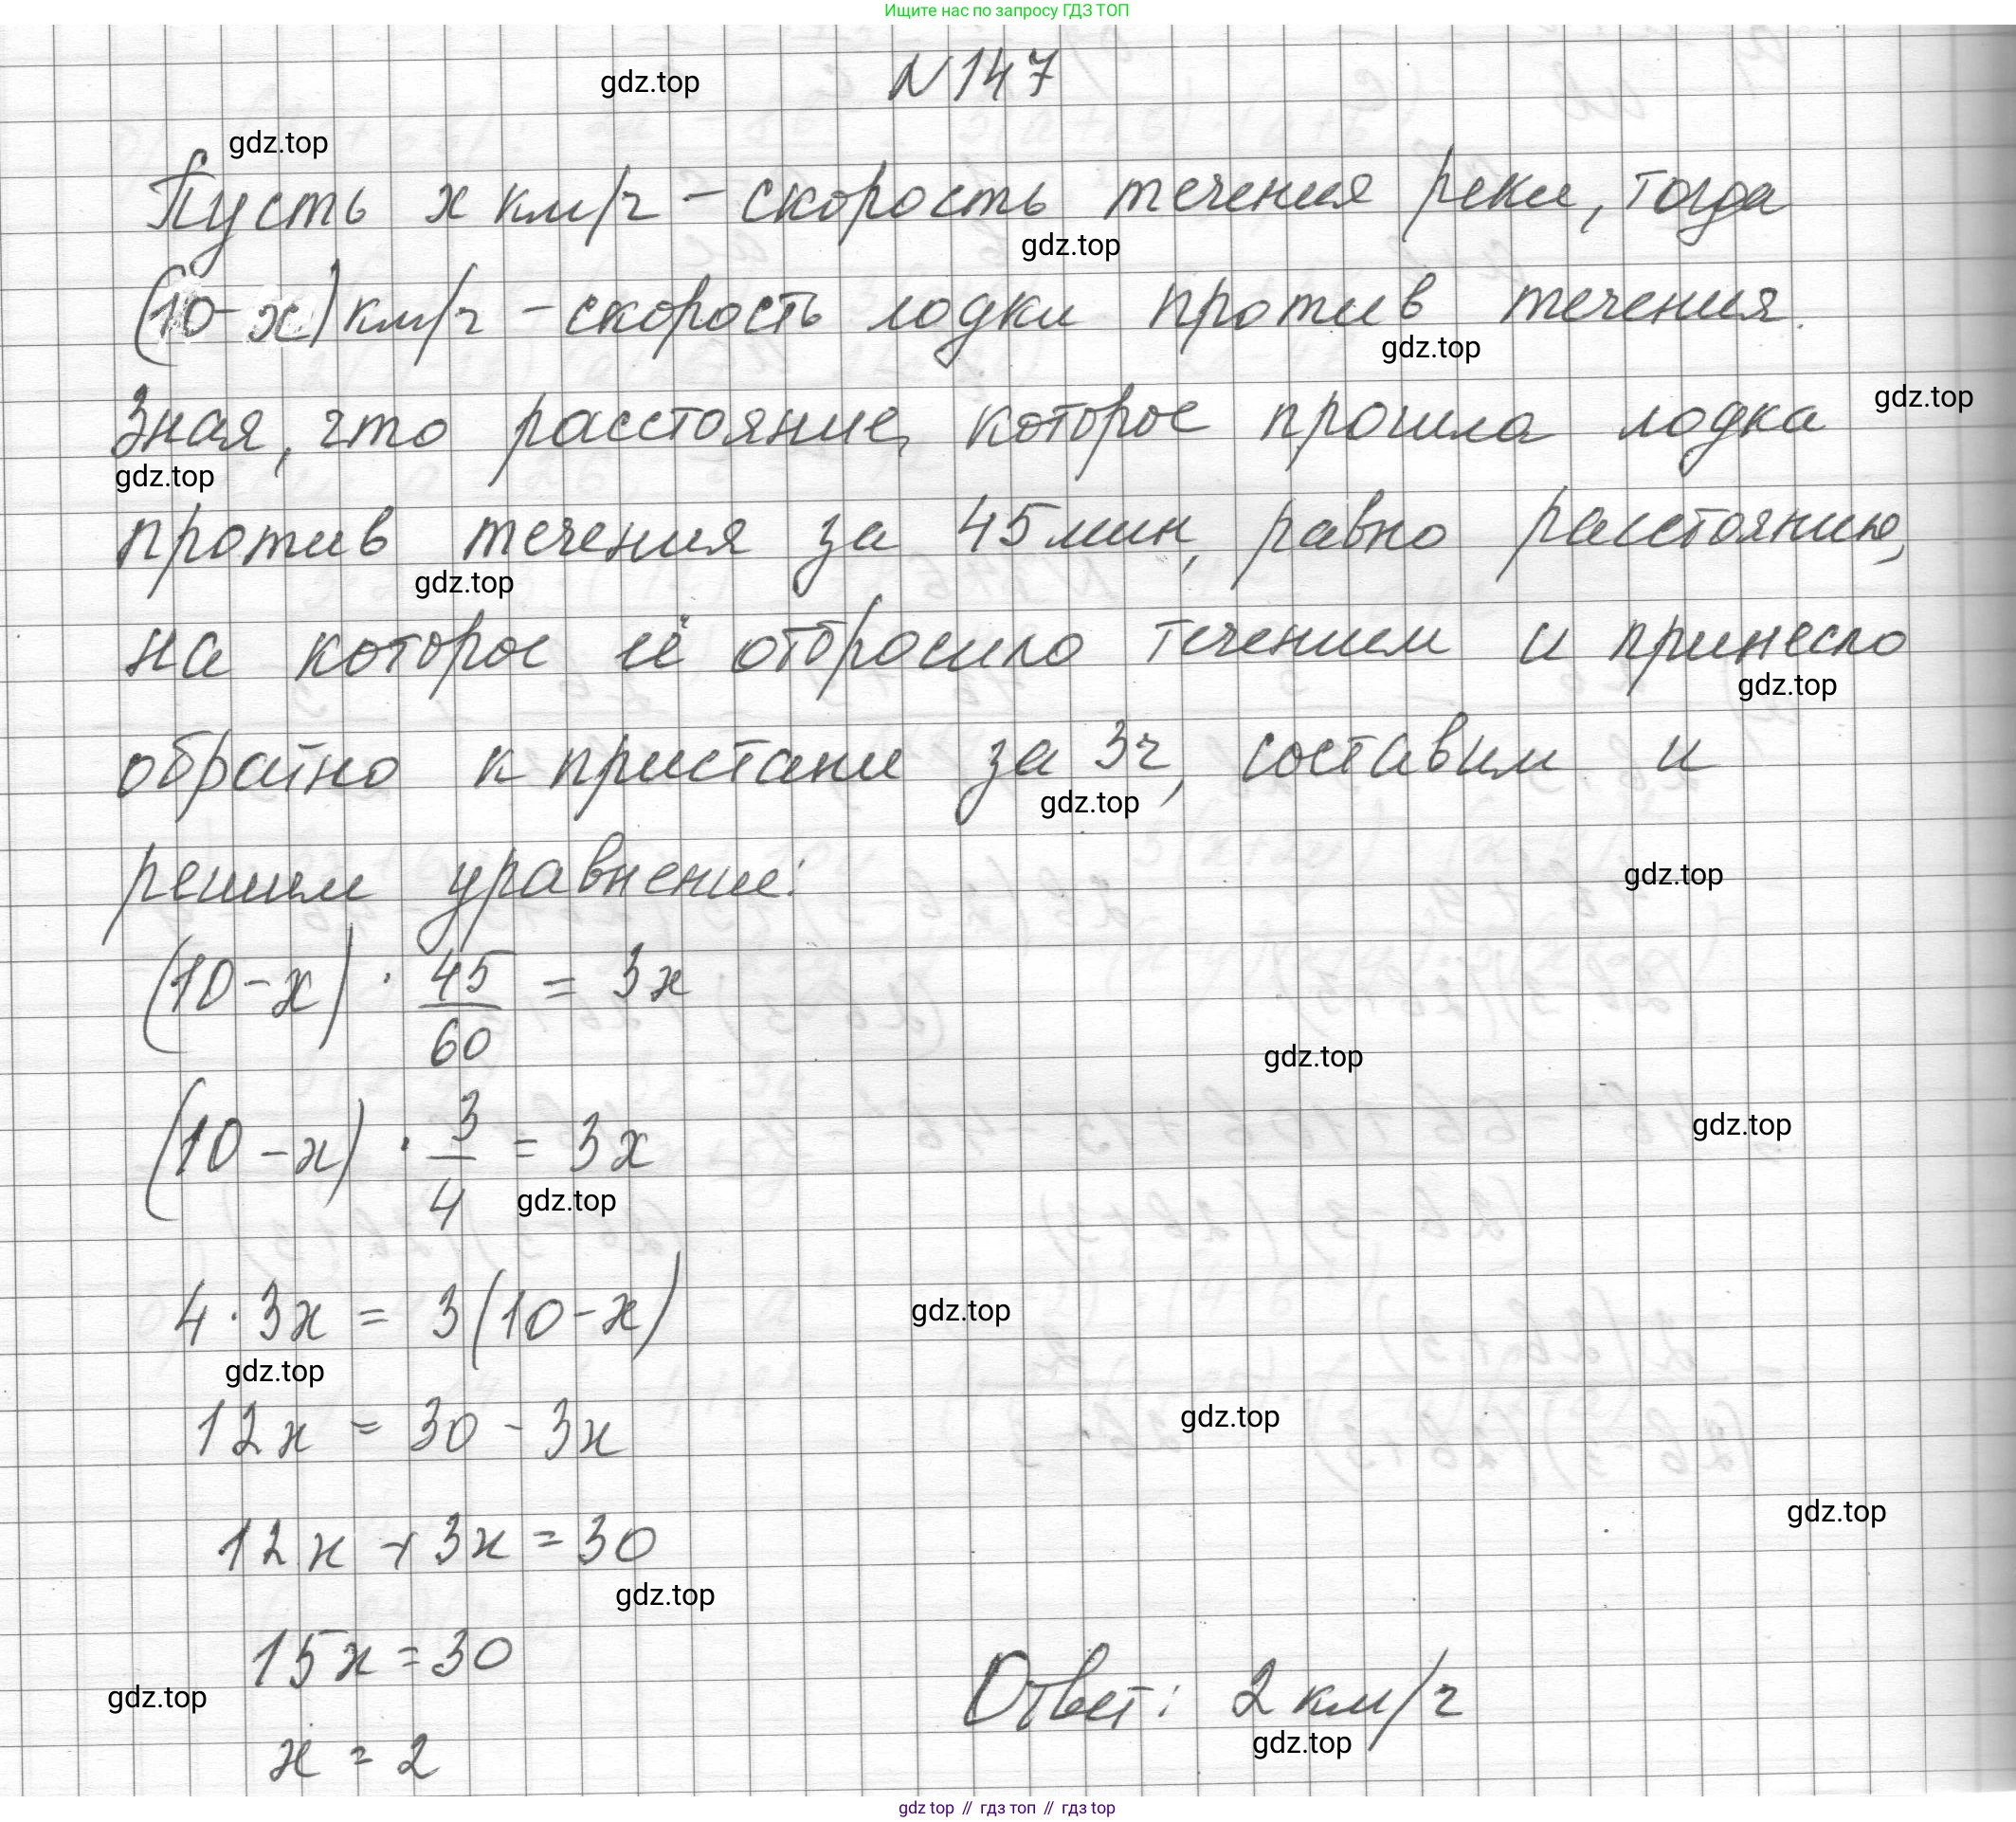 Ищите нас по запросу ГДЗ ТОП
gdz.top
N 147
gdz.top
Пусть x км/ч – скорость течения реки, тогда
gdz.top
(10-x) км/ч – скорость лодки против течения.
gdz.top
gdz.top
Зная, что расстояние, которое прошла лодка
gdz.top
против течения за 45 мин, равно расстоянию,
gdz.top
на которое её отбросило течением и принесло
gdz.top
обратно к пристани за 3ч, составим и
gdz.top
решим уравнение:
gdz.top
(10-x) · 45/60 = 3x
gdz.top
gdz.top
(10-x) · 3/4 = 3x
gdz.top
4·3x = 3(10-x)
gdz.top
gdz.top
12x = 30 - 3x
gdz.top
gdz.top
12x + 3x = 30
gdz.top
15x = 30
gdz.top
Ответ: 2 км/ч
gdz.top
x = 2
gdz top // гдз топ // гдз top